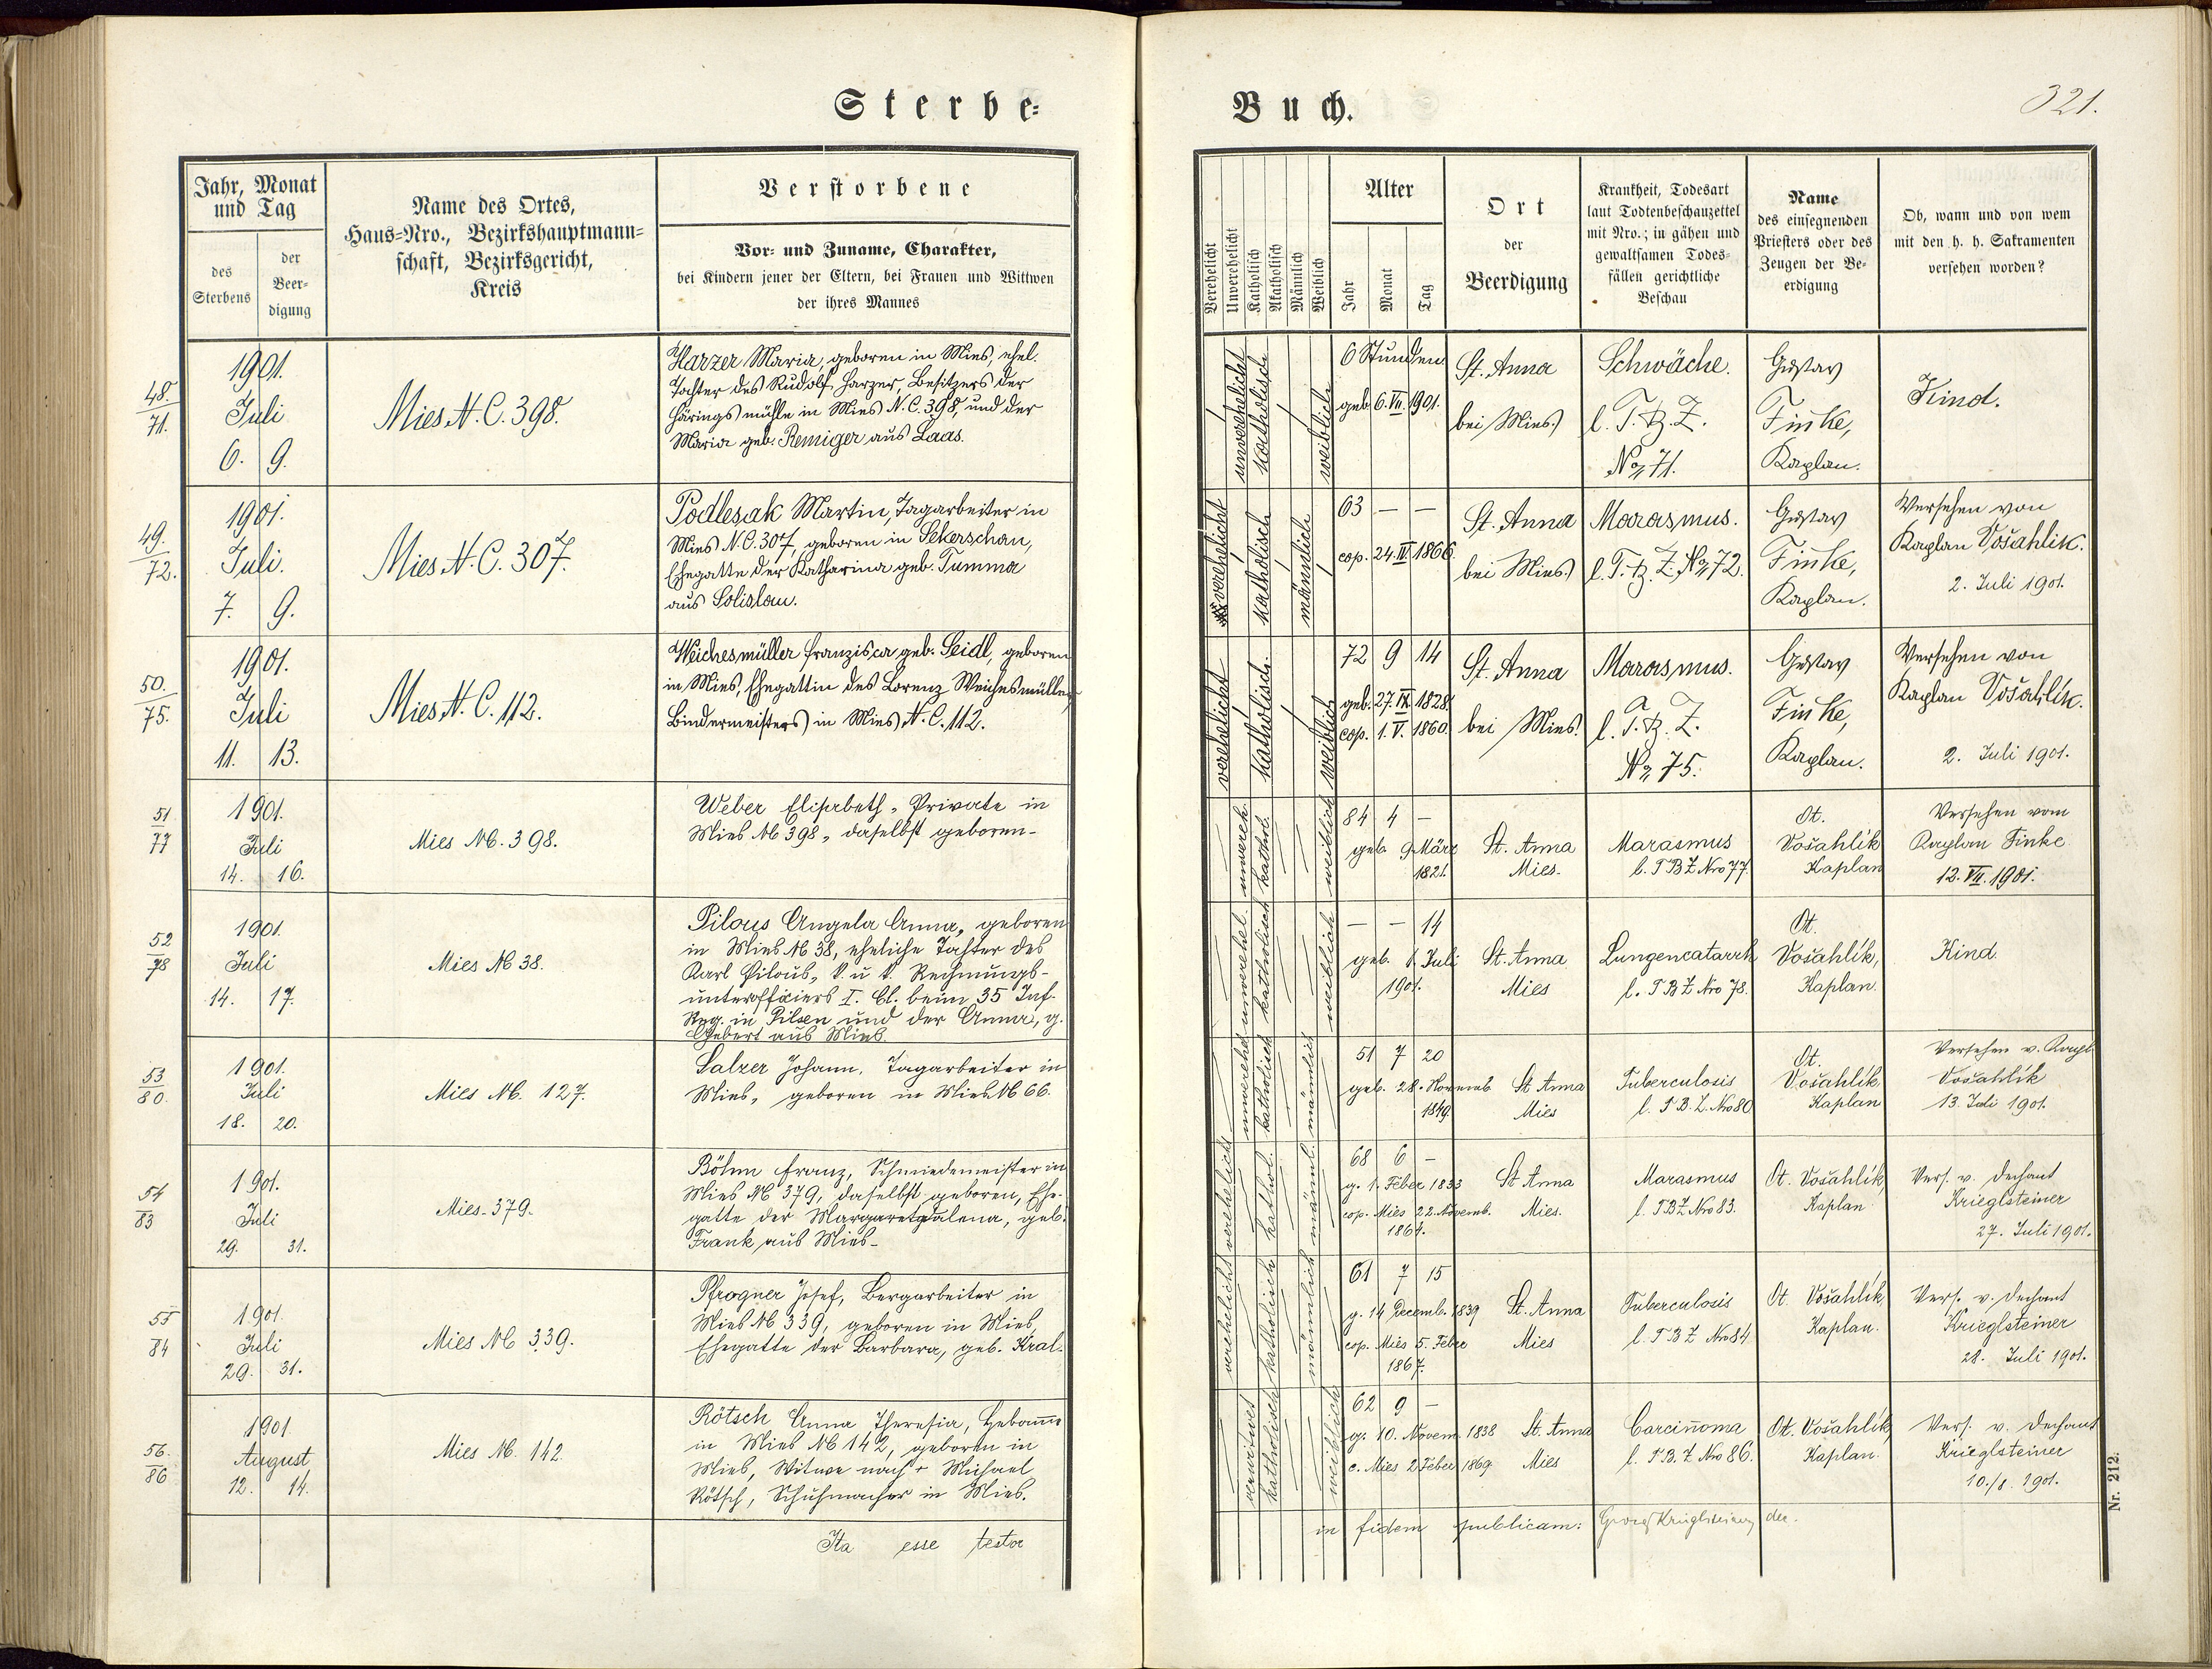 Sterbe-
Buch.
321.
Jahr, Monat
und Tag
des
Sterbens
der
Beer-
digung
Name des Ortes,
Haus-Nro., Bezirkshauptmann-
schaft, Bezirksgericht,
Kreis
Verstorbene
Vor- und Zuname, Charakter,
bei Kindern jener der Eltern, bei Frauen und Wittwen
der ihres Mannes
Verehelicht
Unverehelicht
Katholisch
Akatholisch
Männlich
Weiblich
Alter
Jahr
Monat
Tag
Ort
der
Beerdigung
Krankheit, Todesart
laut Todtenbeschauzettel
mit Nro.; in gähen und
gewaltsamen Todes-
fällen gerichtliche
Beschau
Name
des einsegnenden
Priesters oder des
Zeugen der Be-
erdigung
Ob, wann und von wem
mit den h. h. Sakramenten
versehen worden?
48.
71.
1901.
Juli
6. 9.
Mies N.C. 398.
Harzer Maria, geboren in Mies, ehel.
Tochter des Rudolf Harzer, Besitzers der
Häringsmühle in Mies N.C. 398, und der
Maria geb. Remiger aus Laas.
unverehelicht
katholisch
weiblich
6 Stunden
geb. 6. VII. 1901.
St. Anna
bei Mies.
Schwäche.
l. T. B. Z.
No 71.
Gustav
Finke,
Kaplan.
Kind.
49.
72.
1901.
Juli.
7. 9.
Mies N.C. 307.
Podlesak Martin, Tagarbeiter in
Mies N.C. 307, geboren in Sekerschan,
Ehegatte der Katharina geb. Tumma
aus Solislau.
verehelicht
katholisch
männlich
63 — —
cop. 24. IV. 1866.
St. Anna
bei Mies.
Marasmus.
l. T. B. Z. No 72.
Gustav
Finke,
Kaplan.
Versehen von
Kaplan Vošahlik.
2. Juli 1901.
50.
75.
1901.
Juli
11. 13.
Mies N.C. 112.
Weichesmüller Franzisca geb. Seidl, geboren
in Mies, Ehegattin des Lorenz Weichesmüller,
Bindermeisters in Mies N.C. 112.
verehelicht
katholisch.
weiblich
72 9 14
geb. 27. IX. 1828.
cop. 1. V. 1860.
St. Anna
bei Mies.
Marasmus.
l. T. B. Z.
No 75.
Gustav
Finke,
Kaplan.
Versehen von
Kaplan Vošahlík.
2. Juli 1901.
51
77
1901.
Juli
14. 16.
Mies NC. 398.
Weber Elisabeth, Private in
Mies NC 398, daselbst geboren-
unvereh.
kathol.
weiblich
84 4 —
geb 9 März
1821.
St. Anna
Mies.
Marasmus
l. T B Z Nro 77.
Ot.
Vošahlík
Kaplan
Versehen vom
Kaplan Finke
12. VII. 1901.
52
78
1901.
Juli
14. 17.
Mies NC 38.
Pilous Angela Anna, geboren
in Mies NC 38, eheliche Tochter des
Karl Pilous, k. u. k. Rechnungs-
unterofficiers I. Cl. beim 35 Inf.
Reg. in Pilsen und der Anna, g.
Gebert aus Mies.
unverehel.
katholisch
weiblich
— — 14
geb. 1. Juli
1901.
St. Anna
Mies
Lungencatarrh
l. T B Z Nro 78.
Ot.
Vošahlík,
Kaplan.
Kind.
53
80.
1901.
Juli
18. 20.
Mies NC. 127.
Salzer Johann, Tagarbeiter in
Mies, geboren in Mies NC 66.
unverehel
katholisch
männlich
51 7 20
geb. 28. Novemb.
1849.
St Anna
Mies
Tuberculosis
l. T B. Z. Nro 80
Ot.
Vošahlík
Kaplan
Versehen v. Kapl.
Vošahlík
13. Juli 1901.
54
83
1901.
Juli
29. 31.
Mies-379.
Böhm Franz, Schmiedemeister in
Mies NC 379, daselbst geboren, Ehe-
gatte der Margaretdalena, geb.
Frank aus Mies-
verehelicht
kathol.
männl.
68 6 —
g. 1. Feber 1833
cop. Mies 22. Novemb.
1864.
St Anna
Mies.
Marasmus
l. TBZ Nro 83.
Ot. Vošahlík,
Kaplan
Vers. v. Dechant
Krieglsteiner
27. Juli 1901.
55
84
1901.
Juli
29. 31.
Mies NC 339.
Pfrogner Josef, Bergarbeiter in
Mies NC 339, geboren in Mies,
Ehegatte der Barbara, geb. Kral.
verehelicht
katholisch
männlich
61 7 15
g. 14 Decemb. 1839
cop. Mies 5. Feber
1867.
St. Anna
Mies
Tuberculosis
l. T B Z Nro 84
Ot. Vošahlík,
Kaplan.
Vers. v. Dechant
Krieglsteiner
28. Juli 1901.
56.
86
1901
August
12. 14.
Mies NC. 142.
Rötsch Anna Theresia, Hebamme
in Mies NC 142, geboren in
Mies, Witwe nach + Michael
Rötsch, Schuhmacher in Mies.
verwitwet
katholisch
weiblich
62 9 —
g. 10. Novem. 1838
c. Mies 2 Feber 1869
St. Anna
Mies
Carcinoma
l. T B. Z Nro 86.
Ot. Vošahlík,
Kaplan.
Vers. v. Dechant
Krieglsteiner
10./8. 1901.
Ita esse testor
in fidem publicam: Georg Krieglsteiner, der.
Nr. 212.